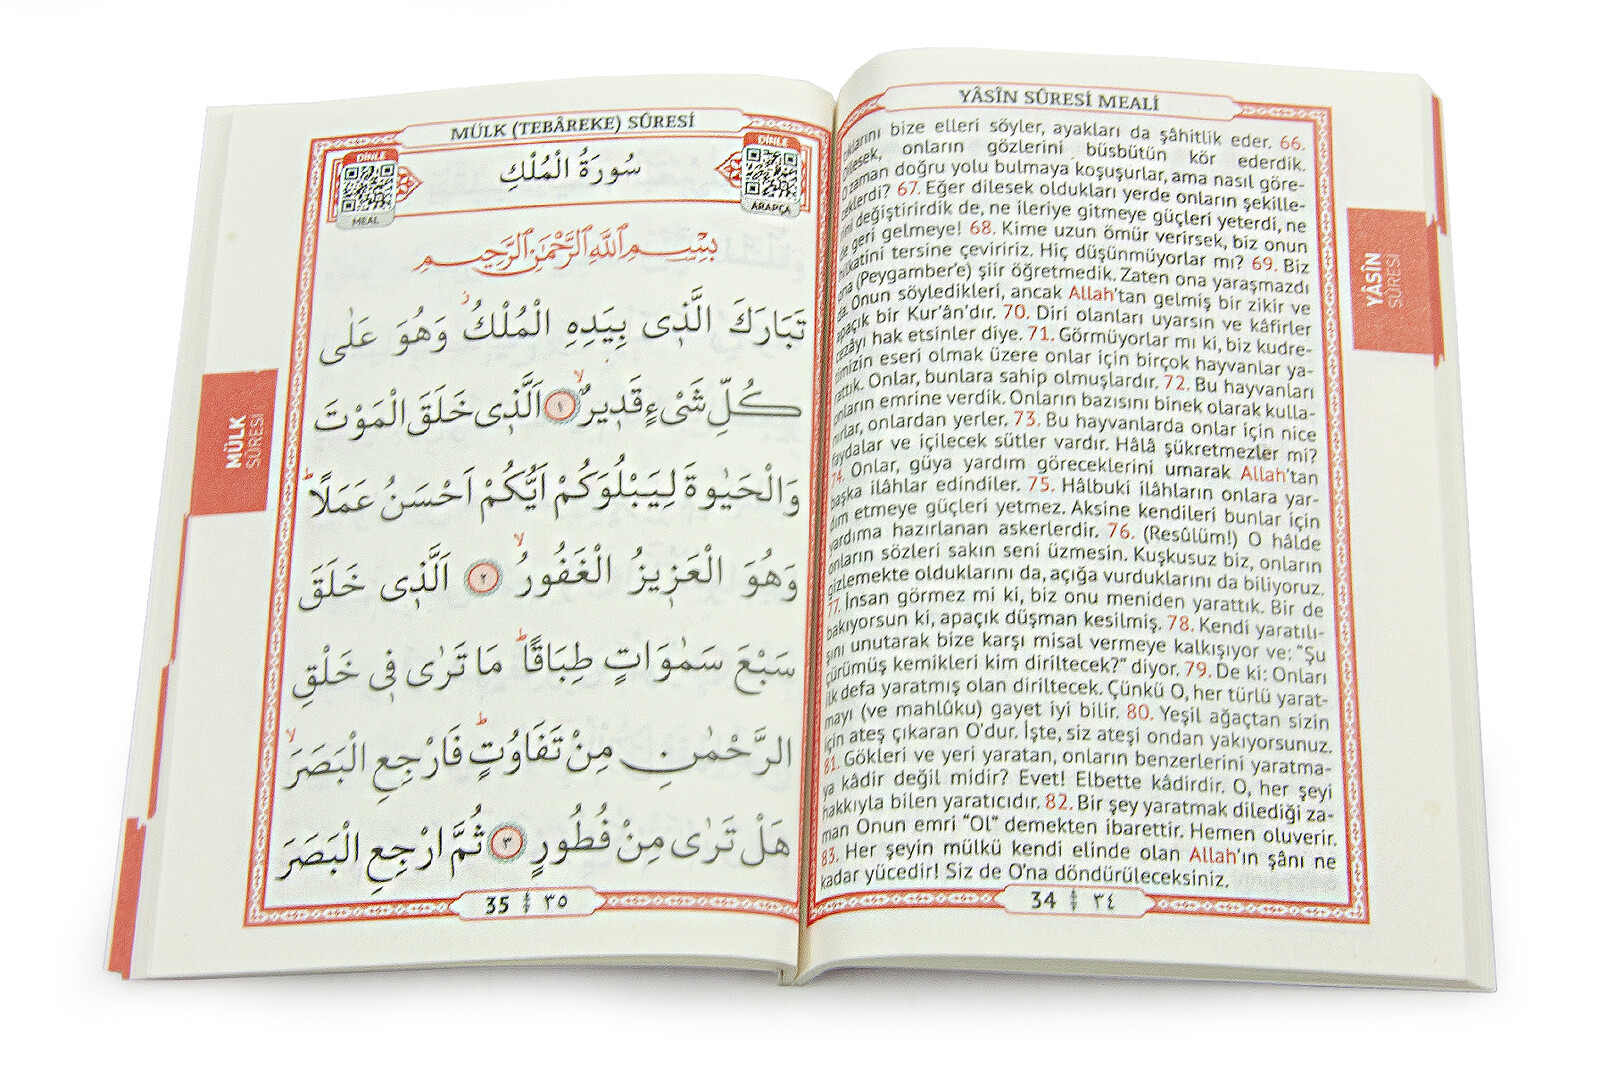 YÂSÎN SÛRESİ MEALİ
bize elleri söyler, ayakları da şâhitlik eder. 66.
onların gözlerini büsbütün kör ederdik.
zaman doğru yolu bulmaya koşuşurlar, ama nasıl göre-
ceklerdi? 67. Eğer dilesek oldukları yerde onların şekille-
rini değiştirirdik de, ne ileriye gitmeye güçleri yeterdi, ne
de geri gelmeye! 68. Kime uzun ömür verirsek, biz onun
hilkatini tersine çeviririz. Hiç düşünmüyorlar mı? 69. Biz
ona (Peygamber'e) şiir öğretmedik. Zaten ona yaraşmazdı
da. Onun söyledikleri, ancak Allah'tan gelmiş bir zikir ve
apaçık bir Kur'ân'dır. 70. Diri olanları uyarsın ve kâfirler
cezâyı hak etsinler diye. 71. Görmüyorlar mı ki, biz kudre-
timizin eseri olmak üzere onlar için birçok hayvanlar ya-
rattık. Onlar, bunlara sahip olmuşlardır. 72. Bu hayvanları
onların emrine verdik. Onların bazısını binek olarak kulla-
nırlar, onlardan yerler. 73. Bu hayvanlarda onlar için nice
faydalar ve içilecek sütler vardır. Hâlâ şükretmezler mi?
74. Onlar, güya yardım göreceklerini umarak Allah'tan
başka ilâhlar edindiler. 75. Hâlbuki ilâhların onlara yar-
dım etmeye güçleri yetmez. Aksine kendileri bunlar için
yardıma hazırlanan askerlerdir. 76. (Resûlüm!) O hâlde
onların sözleri sakın seni üzmesin. Kuşkusuz biz, onların
gizlemekte olduklarını da, açığa vurduklarını da biliyoruz.
77. İnsan görmez mi ki, biz onu meniden yarattık. Bir de
bakıyorsun ki, apaçık düşman kesilmiş. 78. Kendi yaratılı-
şını unutarak bize karşı misal vermeye kalkışıyor ve: "Şu
çürümüş kemikleri kim diriltecek?" diyor. 79. De ki: Onları
ilk defa yaratmış olan diriltecek. Çünkü O, her türlü yarat-
mayı (ve mahlûku) gayet iyi bilir. 80. Yeşil ağaçtan sizin
için ateş çıkaran O'dur. İşte, siz ateşi ondan yakıyorsunuz.
81. Gökleri ve yeri yaratan, onların benzerlerini yaratma-
ya kâdir değil midir? Evet! Elbette kâdirdir. O, her şeyi
hakkıyla bilen yaratıcıdır. 82. Bir şey yaratmak dilediği za-
man Onun emri "OL" demekten ibarettir. Hemen oluverir.
83. Her şeyin mülkü kendi elinde olan Allah'ın şânı ne
kadar yücedir! Siz de O'na döndürüleceksiniz.
34 ٣٤
YÂSÎN
SÛRESİ
MÜLK (TEBÂREKE) SÛRESİ
DİNLE
MEAL
سُورَةُ الْمُلْكِ
DİNLE
ARAPÇA
بِسْمِ اللّٰهِ الرَّحْمٰنِ الرَّحِيمِ
تَبَارَكَ الَّذ۪ى بِيَدِهِ الْمُلْكُۘ وَهُوَ عَلٰى
كُلِّ شَىْءٍ قَد۪يرٌۙ ١ اَلَّذ۪ى خَلَقَ الْمَوْتَ
وَالْحَيٰوةَ لِيَبْلُوَكُمْ اَيُّكُمْ اَحْسَنُ عَمَلًاۜ
وَهُوَ الْعَز۪يزُ الْغَفُورُۙ ٢ اَلَّذ۪ى خَلَقَ
سَبْعَ سَمٰوَاتٍ طِبَاقًاۜ مَا تَرٰى ف۪ى خَلْقِ
الرَّحْمٰنِ مِنْ تَفَاوُتٍۜ فَارْجِعِ الْبَصَرَۙ
هَلْ تَرٰى مِنْ فُطُورٍ ٣ ثُمَّ ارْجِعِ الْبَصَرَ
35 ٣٥
MÜLK
SÛRESİ